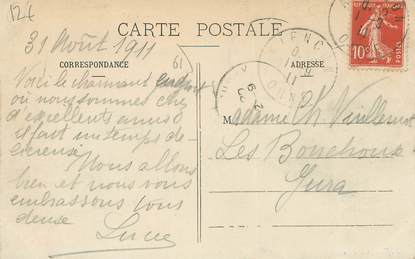 124
CARTE POSTALE
31 Août 1911
61
CORRESPONDANCE
ADRESSE
Voici le charmant endroit
où nous sommes chez
d'excellents amis
Il fait un temps dé-
licieux
Nous allons
bien et nous vous
embrassons tous
deux
Lucie
Madame Ch. Vuillermoz
Les Bouchoux
Jura
10